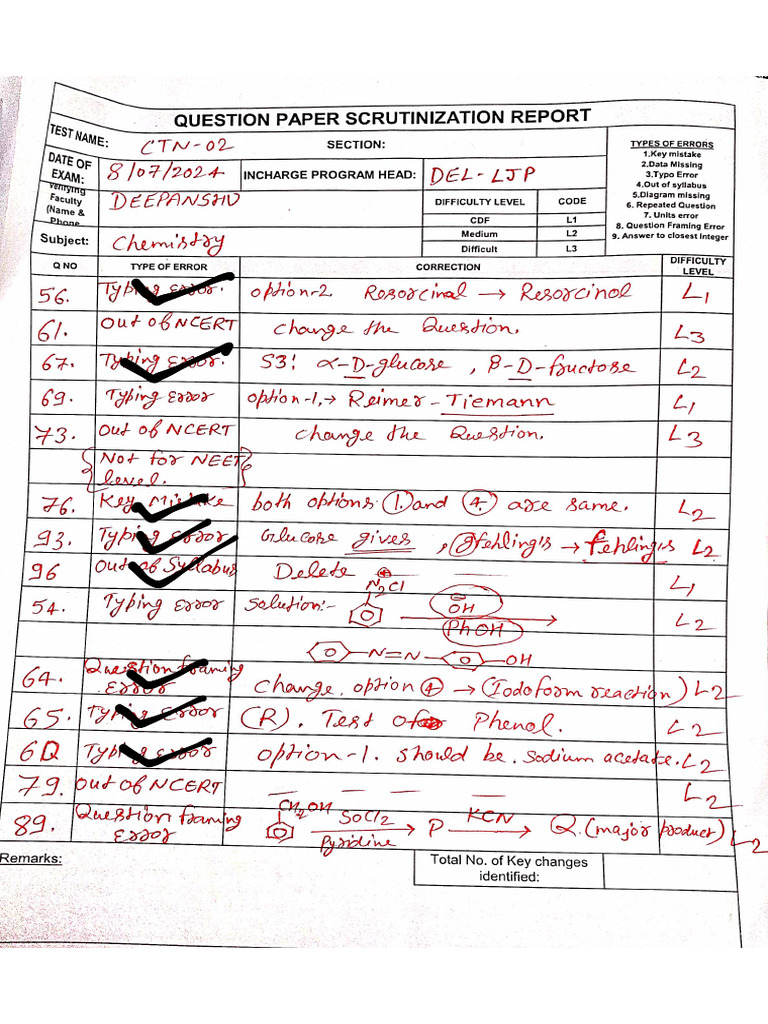 QUESTION PAPER SCRUTINIZATION REPORT
TEST NAME: CTN-02 SECTION:
TYPES OF ERRORS
1.Key mistake
2.Data Missing
3.Typo Error
4.Out of syllabus
5.Diagram missing
6. Repeated Question
7. Units error
8. Question Framing Error
9. Answer to closest Integer
DATE OF EXAM: 8/07/2024 INCHARGE PROGRAM HEAD: DEL-LJP
Verifying Faculty (Name & Phone DEEPANSHU
DIFFICULTY LEVEL CODE
CDF L1
Medium L2
Difficult L3
Subject: Chemistry
Q NO TYPE OF ERROR CORRECTION DIFFICULTY LEVEL
56. Typing error. option-2 Resorcinal → Resorcinol L1
61. Out of NCERT change the Question. L3
67. Typing Error. S3: α-D-glucose, β-D-fructose L2
69. Typing Error option-1,→ Reimer-Tiemann L1
73. Out of NCERT change the Question. L3
{Not for NEET level.}
76. Key Mistake both options (1.) and (4.) are same. L2
93. Typing error Glucose gives, gfehling's → fehling's L2
96 Out of Syllabus Delete L1
54. Typing error Solution:- N2Cl OH PhOH L2
-N=N- -OH
64. Question framing error Change option (4) → (Iodoform reaction) L2
65. Typing Error (R). Test of Phenol. L2
60 Typing error option-1. should be. Sodium acetate. L2
79. Out of NCERT — — — — L2
89. Question framing error CH2OH SOCl2 Pyridine → P KCN → Q. (major product) L2
Remarks:
Total No. of Key changes identified: